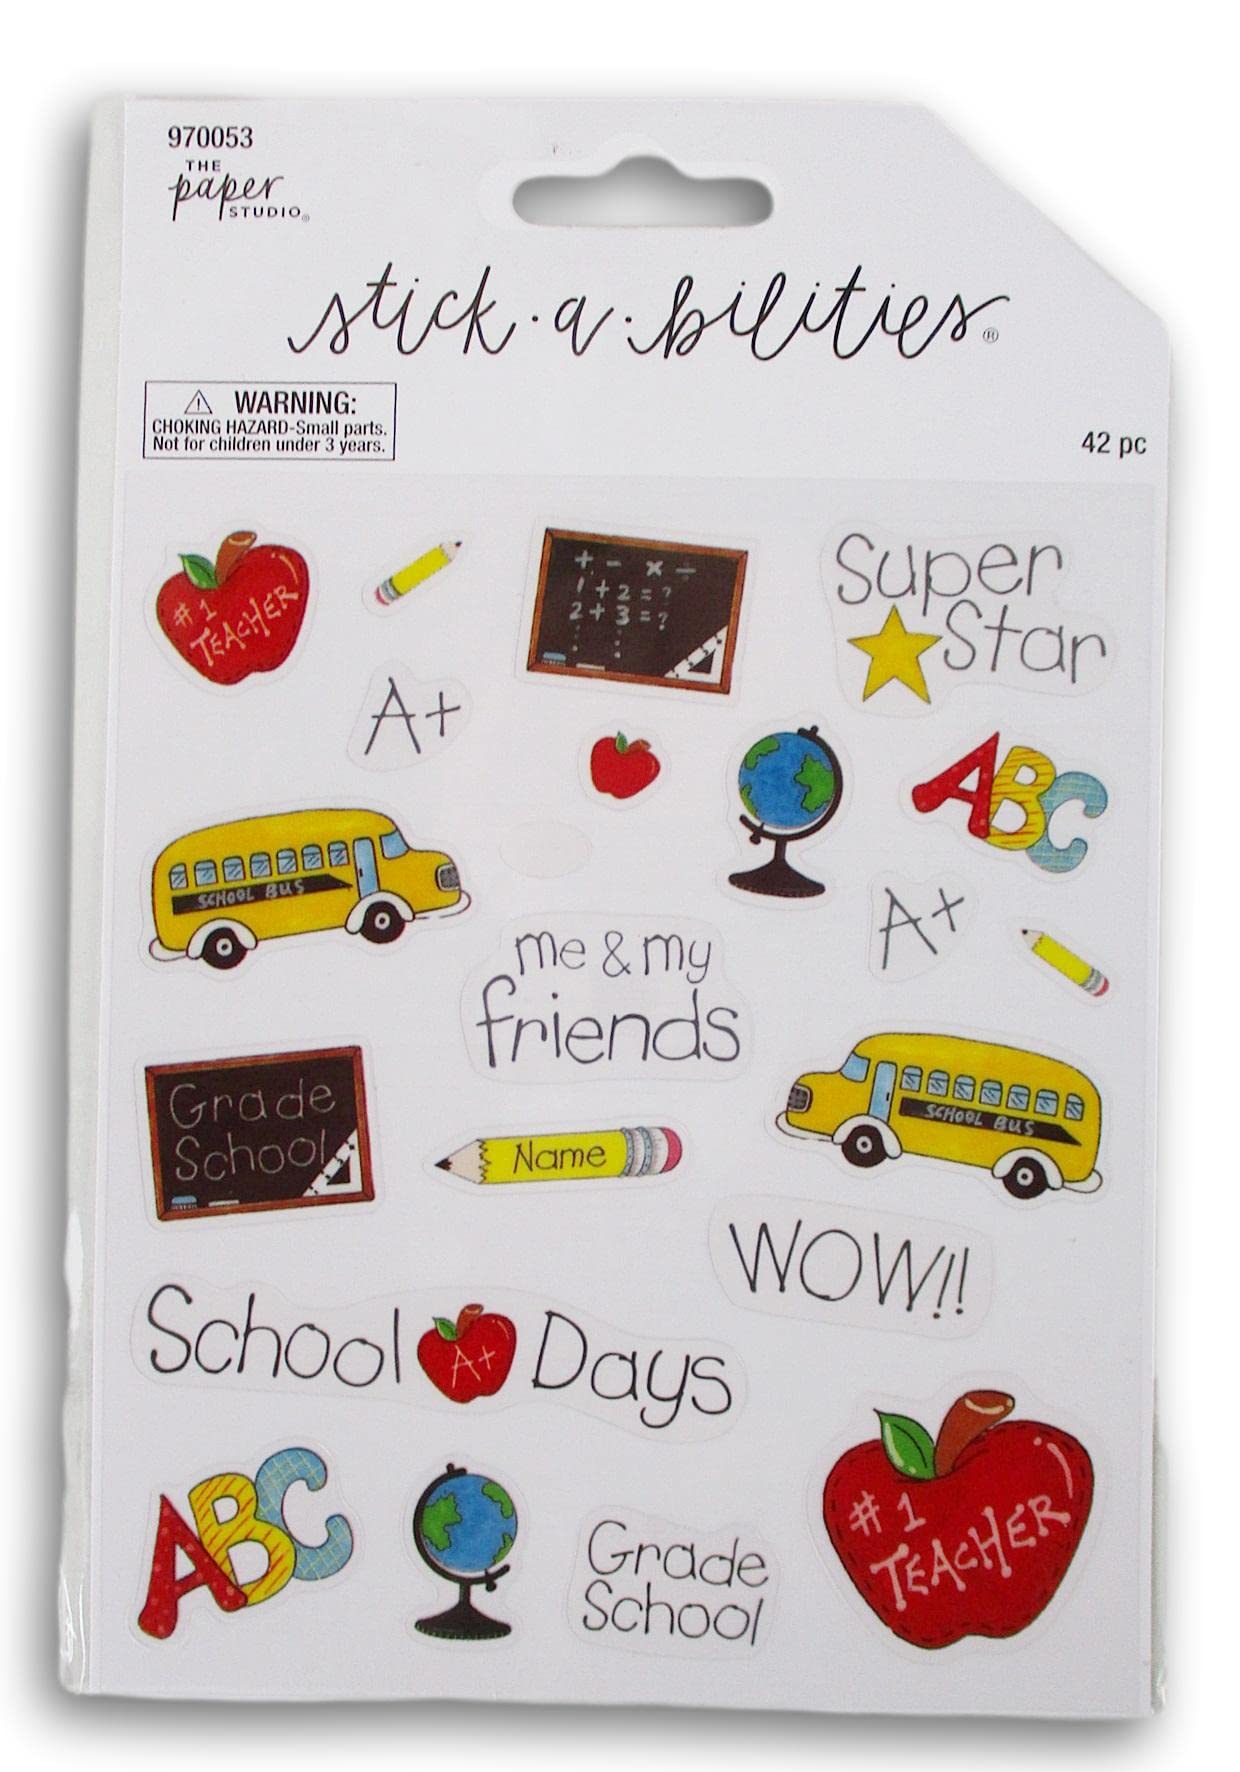 970053
THE
paper
STUDIO®
stick·a·bilities®
⚠ WARNING:
CHOKING HAZARD-Small parts.
Not for children under 3 years.
42 pc
# 1
TEACHER
+ - x ÷
1 + 2 = ?
2 + 3 = ?
Super
Star
A+
ABC
SCHOOL BUS
A+
me & my
friends
Grade
School
Name
SCHOOL BUS
WOW!!
School A+ Days
ABC
Grade
School
# 1
TEACHER